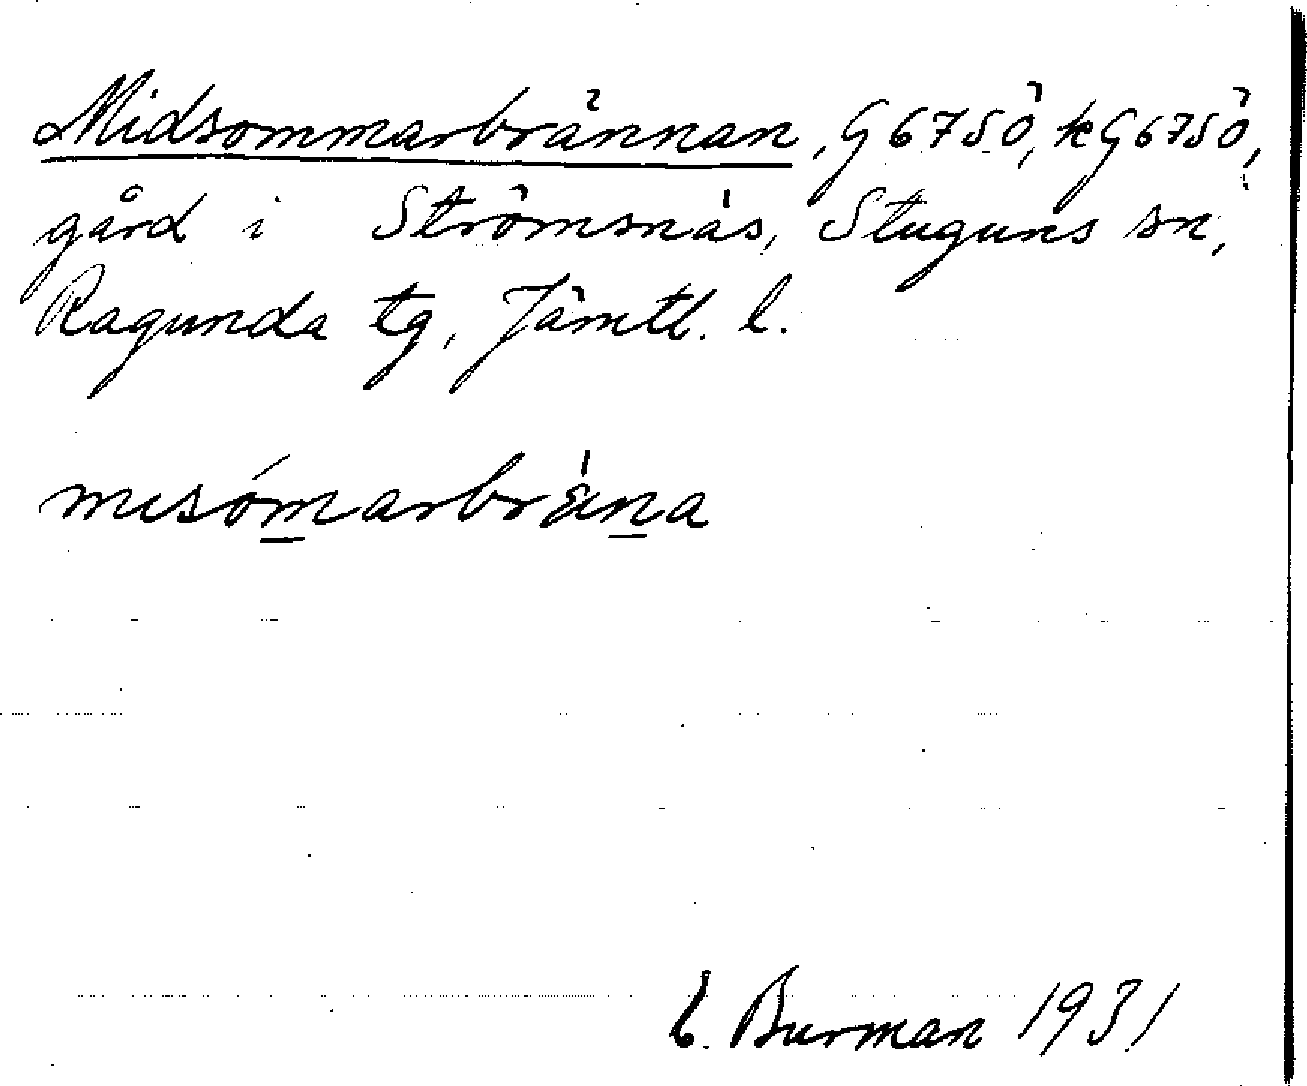 Midsommarbrännan, G 67 SÖ, kG 67 SÖ,
gård i Strömsnäs, Stuguns sn,
Ragunda tg, Jämtl. l.
mɩsómarbrǽna
Burman 1931